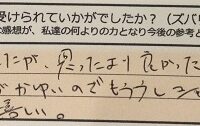 受けられていかがでしたか？（ズバリ
な感想が、私達の何よりの力となり今後の参考と
たが、思ったより良かった
がかゆいのでもう少し
嬉しい。